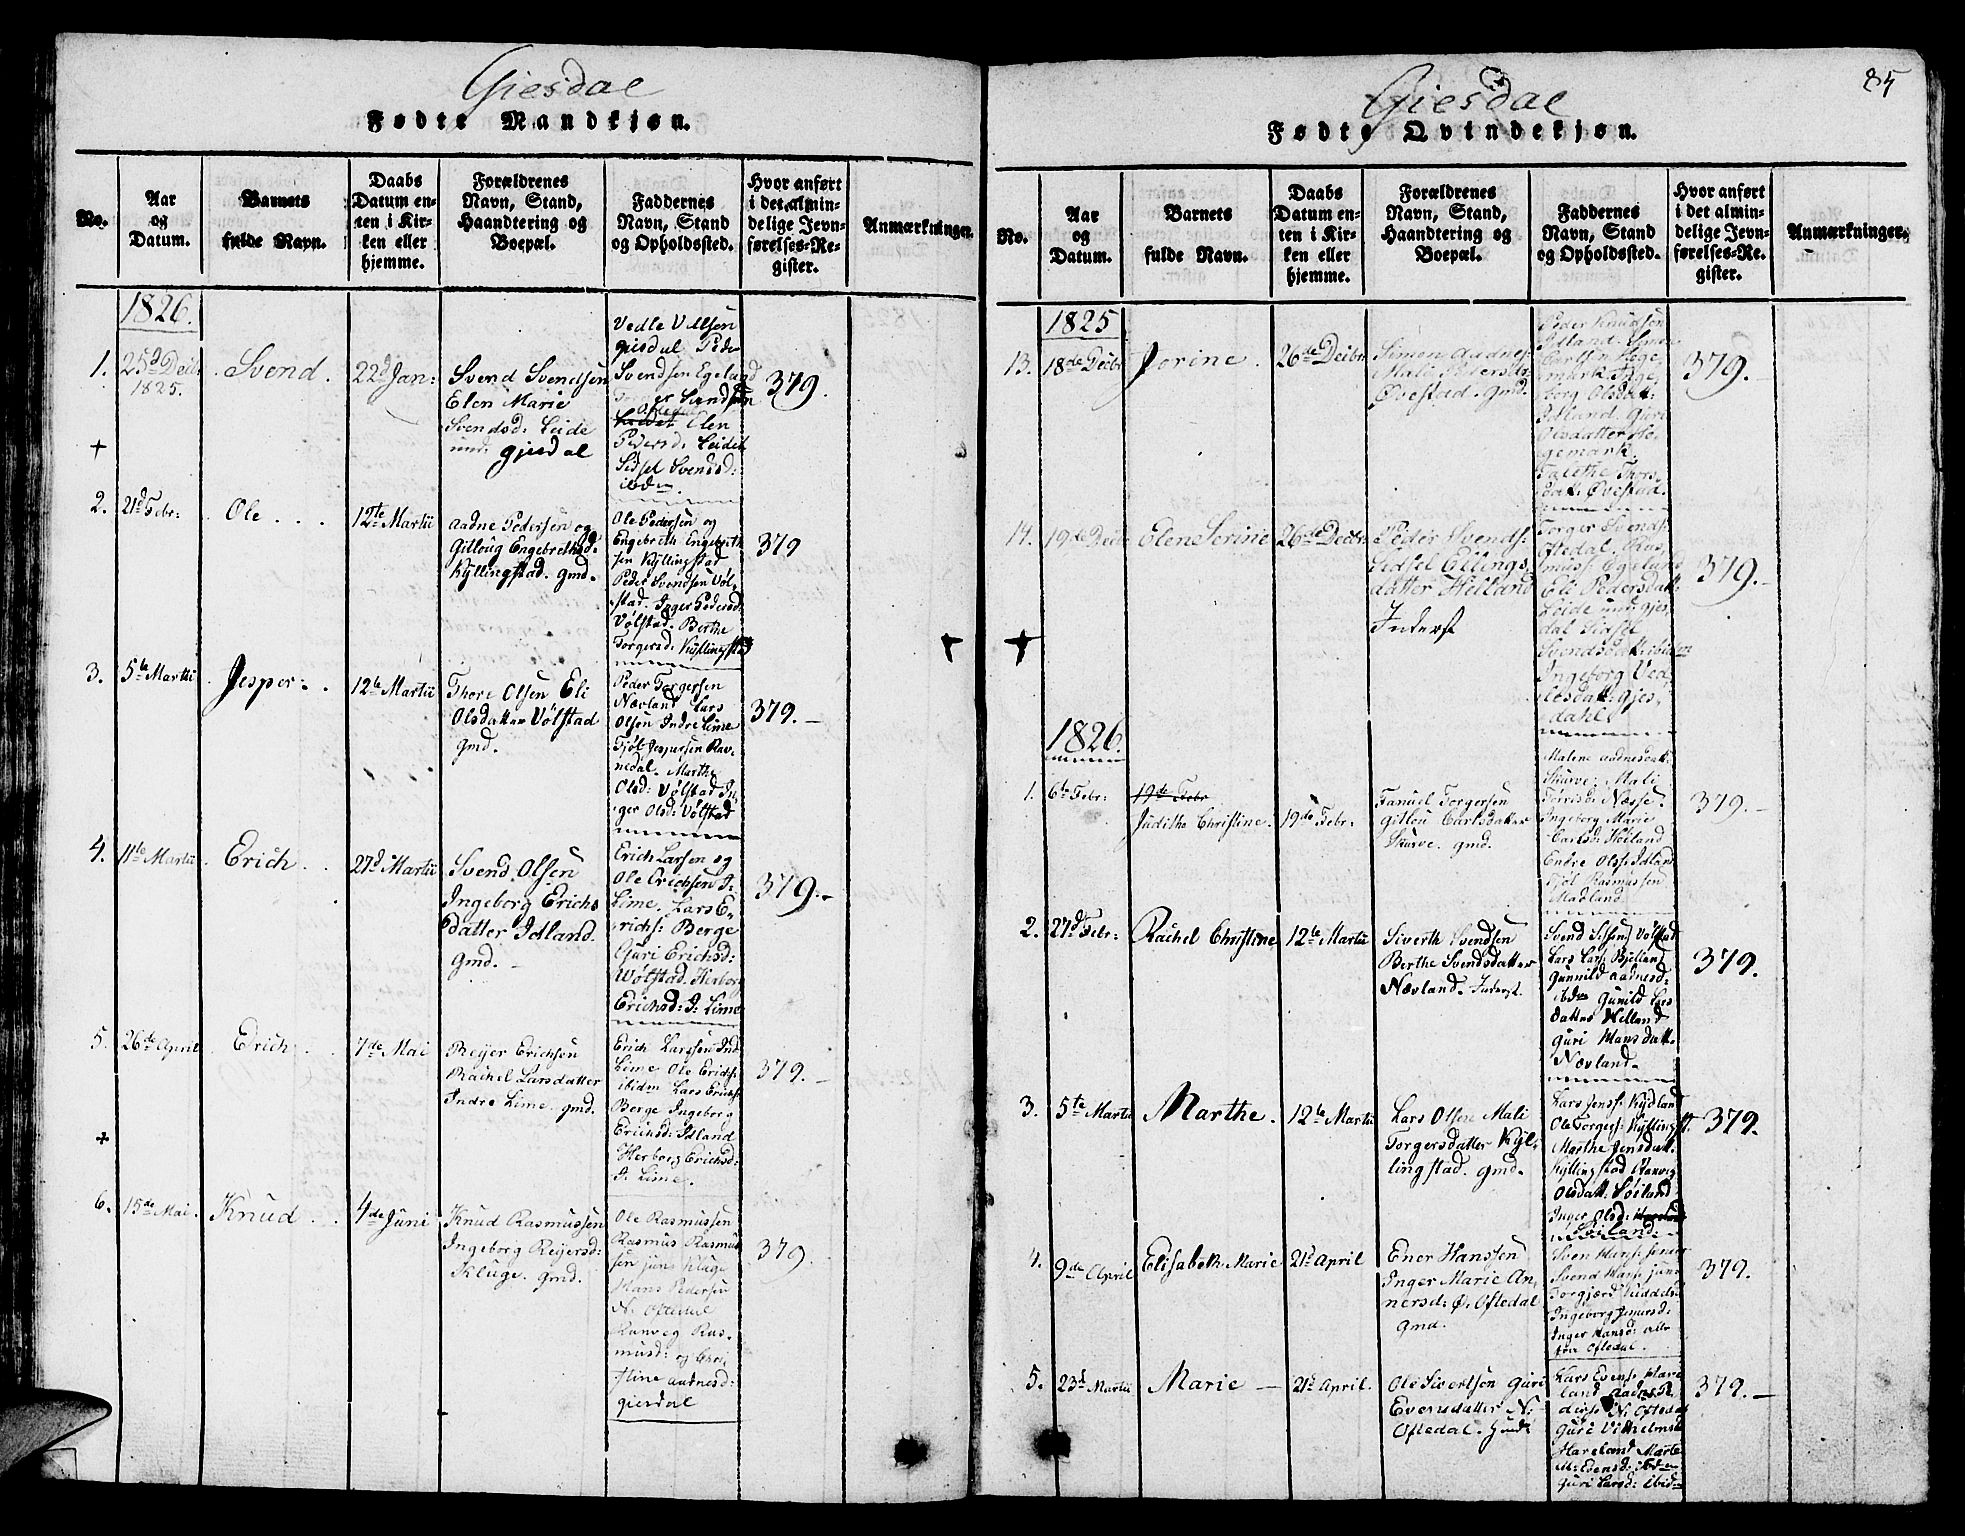 Giesdal
Fødte Mandkjøn.
No.
Aar og Datum.
Barnets fulde Navn.
Daabs Datum enten i Kirken eller hjemme.
Forældrenes Navn, Stand, Haandtering og Boepæl.
Faddernes Navn, Stand og Opholdssted.
Hvor anført i det almindelige Jevnførelses-Register.
Anmærkninger.
1826.
1.
25d Decbr
1825.
Svend.
22d Jan:
Svend Svendsen
Elen Marie
Svendsd: Leide
und: gjesdal
Vedle
gjesdal Peder
Svendsen Egeland
Oftedal
Elen
Pedersd: Leide
Sidsel Svensd:
ibdm.
379.
+
2.
21d Febr:
Ole
12te Martii
Aadne Pedersen og
Gitloug Engebrethsd.
Kyllingstad. gmd.
Ole Pedersen og
Engebreth Engebreth
sen Kyllingstad
Peder Svendsen Vøl-
stad. Inger Pedersd.
Vølstad. Berthe
Torgersd: Kyllingstad
379
3.
5te Martii
Jesper
12te Martii
Thore Olsen Eli
Olsdatter Vølstad
gmd.
Peder Torgersen
Nævland Lars
Olsen Indre Lime
Tjøl Jespersen Rav-
nedal. Marthe
Olsd: Vølstad In-
ger Olsd: Vølstad
379.-
4.
11te Martii
Erich
27d Martii
Svend Olsen
Ingeborg Erichs
datter Idland.
gmd.
Erich Larsen og
Ole Erichsen I:
Lime. Lars E-
richs: Berge
Guri Erichsd:
Wølstad. Herborg
Erichsd: I: Lime
379.-
5.
26de April
Erich
7de Mai
Reijer Erichsen
Rachel Larsdatter
Indre Lime. gmd.
Erich Larssen Ind
Lime Ole Erichs:
ibidm Lars Erichs:
Berge Ingeborg
Erichsd: Idland
Herborg Erichsd:
I. Lime.
379.-
+
6.
15de Mai.
Knud
4de Juni
Knud Rasmussen
Ingeborg Reijersd:
Kluge. gmd.
Ole Rasmussen
Rasmus Rasmus
sen jun: Kluge
Hans Pedersen
N: Oftedal
Ranveg Ras-
musd: og Chri-
stine Aadnesd:
giesdal
379
85
Giesdal
Fødte Qvindekjøn.
No.
Aar og Datum.
Barnets fulde Navn.
Daabs Datum enten i Kirken eller hjemme.
Forældrenes Navn, Stand, Haandtering og Boepæl.
Faddernes Navn, Stand og Opholdssted.
Hvor anført i det almindelige Jevnførelses-Register.
Anmærkninger.
1825
13.
18de Decbr
Jorine.
26de Decbr
Simon Aadnes:
Mali Pedersd:
Øvestad. gmd.
Peder Knudsen
Idland. Simon
Carlsen Hege-
mark. Inge-
borg Olsdatt:
Idland Guri
Olsdatter He-
gemark.
Talethe Thors-
datt: Øvestad.
379.-
14.
19de Decbr
Elen Serine
26de Decbr.
Peder Svends:
Sidsel Ellings-
datter Helland
Inderst
Torger Svends:
Oftedal. Ras-
mus: Egeland
Eli Pedersdatt:
Leide und: gjes-
dal Sidsel
Svendsdatt: ibidm
Ingeborg Ved-
lesdatt: Gjes-
dahl
379.-
1826.
1.
6te Febr:
19de Febr
Juditha Christine.
19de Febr.
Tanuel Torgersen
Gitlou Carlsdatter
Skurve. gmd.
Malene Aadnesdatt:
Skurve. Mali
Torrisd: Næsse.
Ingeborg Marie
Carlsd: Høiland
Endre Ols: Idland
Tjøl Rasmussen
Madland
379.-
2.
27d Febr:
Rachel Christine
12te Martii
Siverth Svendsen
Berthe Svendsdatter
Nævland. Inderst.
Vølstad
Lars Lars: Bjelland
Gunnild Aadnesd:
ibdm Gunild Lars
datter Helland
Guri Hansdatt:
Nævland.
379.
3.
5te Martii
Marthe.
12te Martii
Lars Olsen Mali
Torgersdatter Kyl-
lingstad. gmd.
Lars Jens: Kydland
Ole Torgers: Kyllingst.
Marthe Jensdatt:
Kyllingstad Ranveg
Olsdatt: Søiland
Inger Olsd:
Søiland.
379.
4.
9de April
Elisabeth Marie
21d April
Ener Hanssen
Inger Marie An-
nersd: Ø. Oftedal
gmd.
Sven Hans: senior
Svend Hans: jun:
Ingeborg
Inger Hansd: alle
fra Oftedal.
379.
5.
23d Martii
Marie
21d April.
Ole Sivertsen Guri
Evensdatter N:
Oftedal.
Lars Evens: Hare
land Aadne
N: Oftedal
Guri Vilhelmsd
Hareland Marte
M: Evensd: ibdm
Guri Larsd: ibid:
379.-